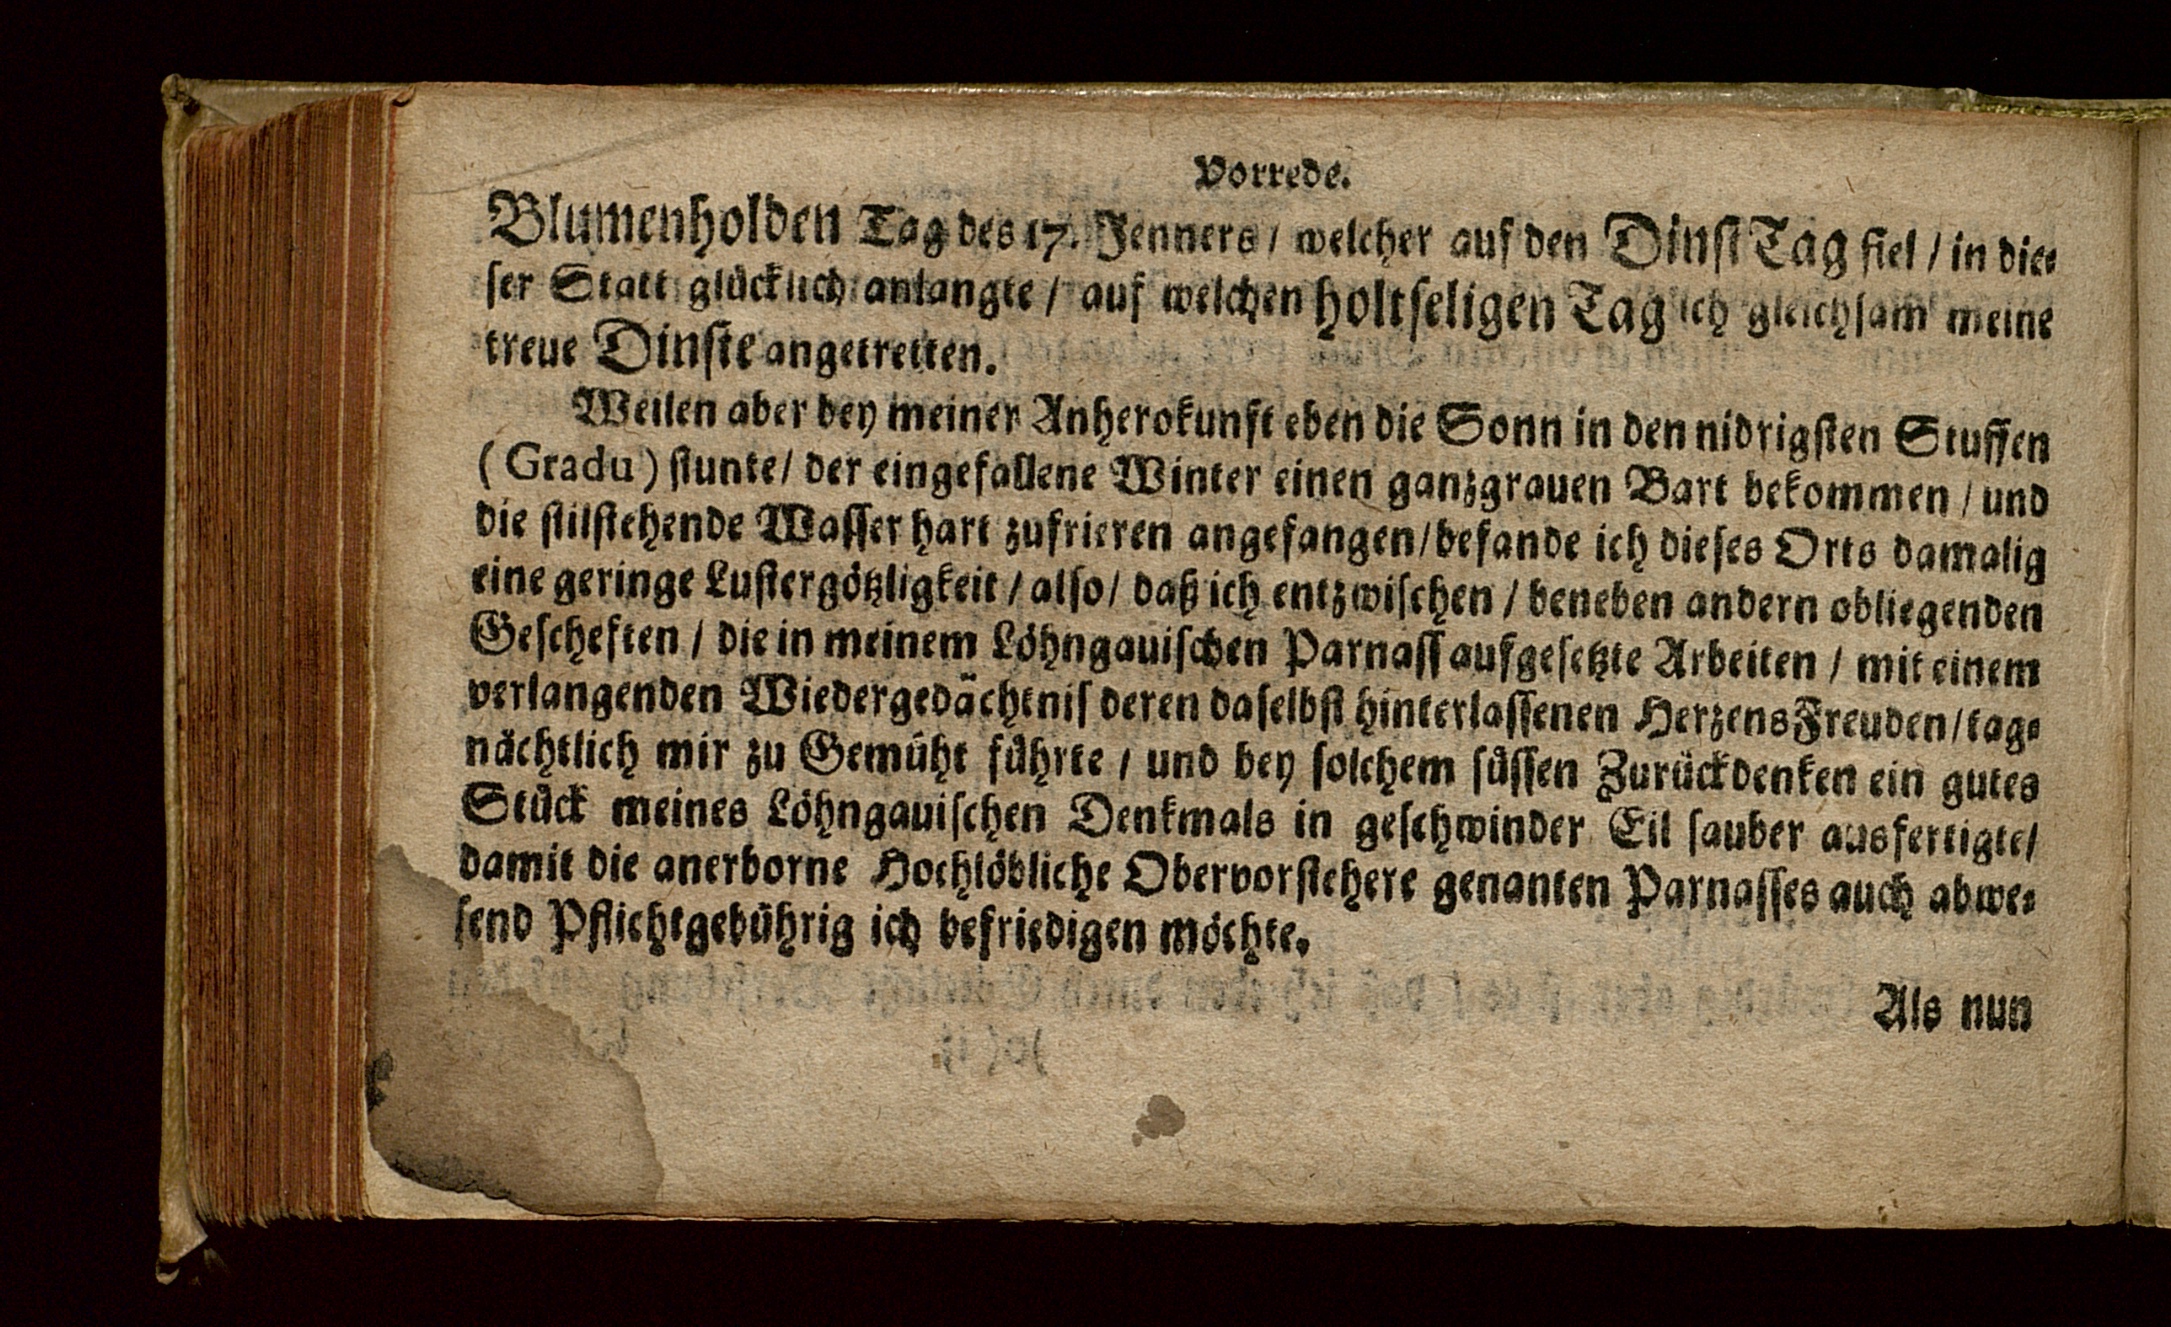 Vorrede.
Blumenholden Tag des 17. Jenners / welcher auf den Dinst Tag fiel / in die⸗
ſer Statt glücklich anlangte / auf welchen holtſeligen Tag ich gleichſam meine
treue Dinſte angetretten.
Weilen aber bey meiner Anherokunft eben die Sonn in den nidrigſten Stuffen
(Gradu) ſtunte / der eingefallene Winter einen ganzgrauen Bart bekommen / und
die ſtilſtehende Waſſer hart zufrieren angefangen / befande ich dieſes Orts damalig
eine geringe Luſtergötzligkeit / alſo / daß ich entzwiſchen / beneben andern obliegenden
Geſcheften / die in meinem Löhngauiſchen Parnaſſ aufgeſetzte Arbeiten / mit einem
verlangenden Wiedergedächtniſ deren daſelbſt hinterlaſſenen HerzensFreuden / tag⸗
nächtlich mir zu Gemüht führte / und bey ſolchem ſüſſen Zurückdenken ein gutes
Stück meines Löhngauiſchen Denkmals in geſchwinder Eil ſauber ausfertigte /
damit die anerborne Hochlöbliche Obervorſtehere genanten Parnaſſes auch abwe⸗
ſend Pflichtgebührig ich befriedigen möchte.
Als nun